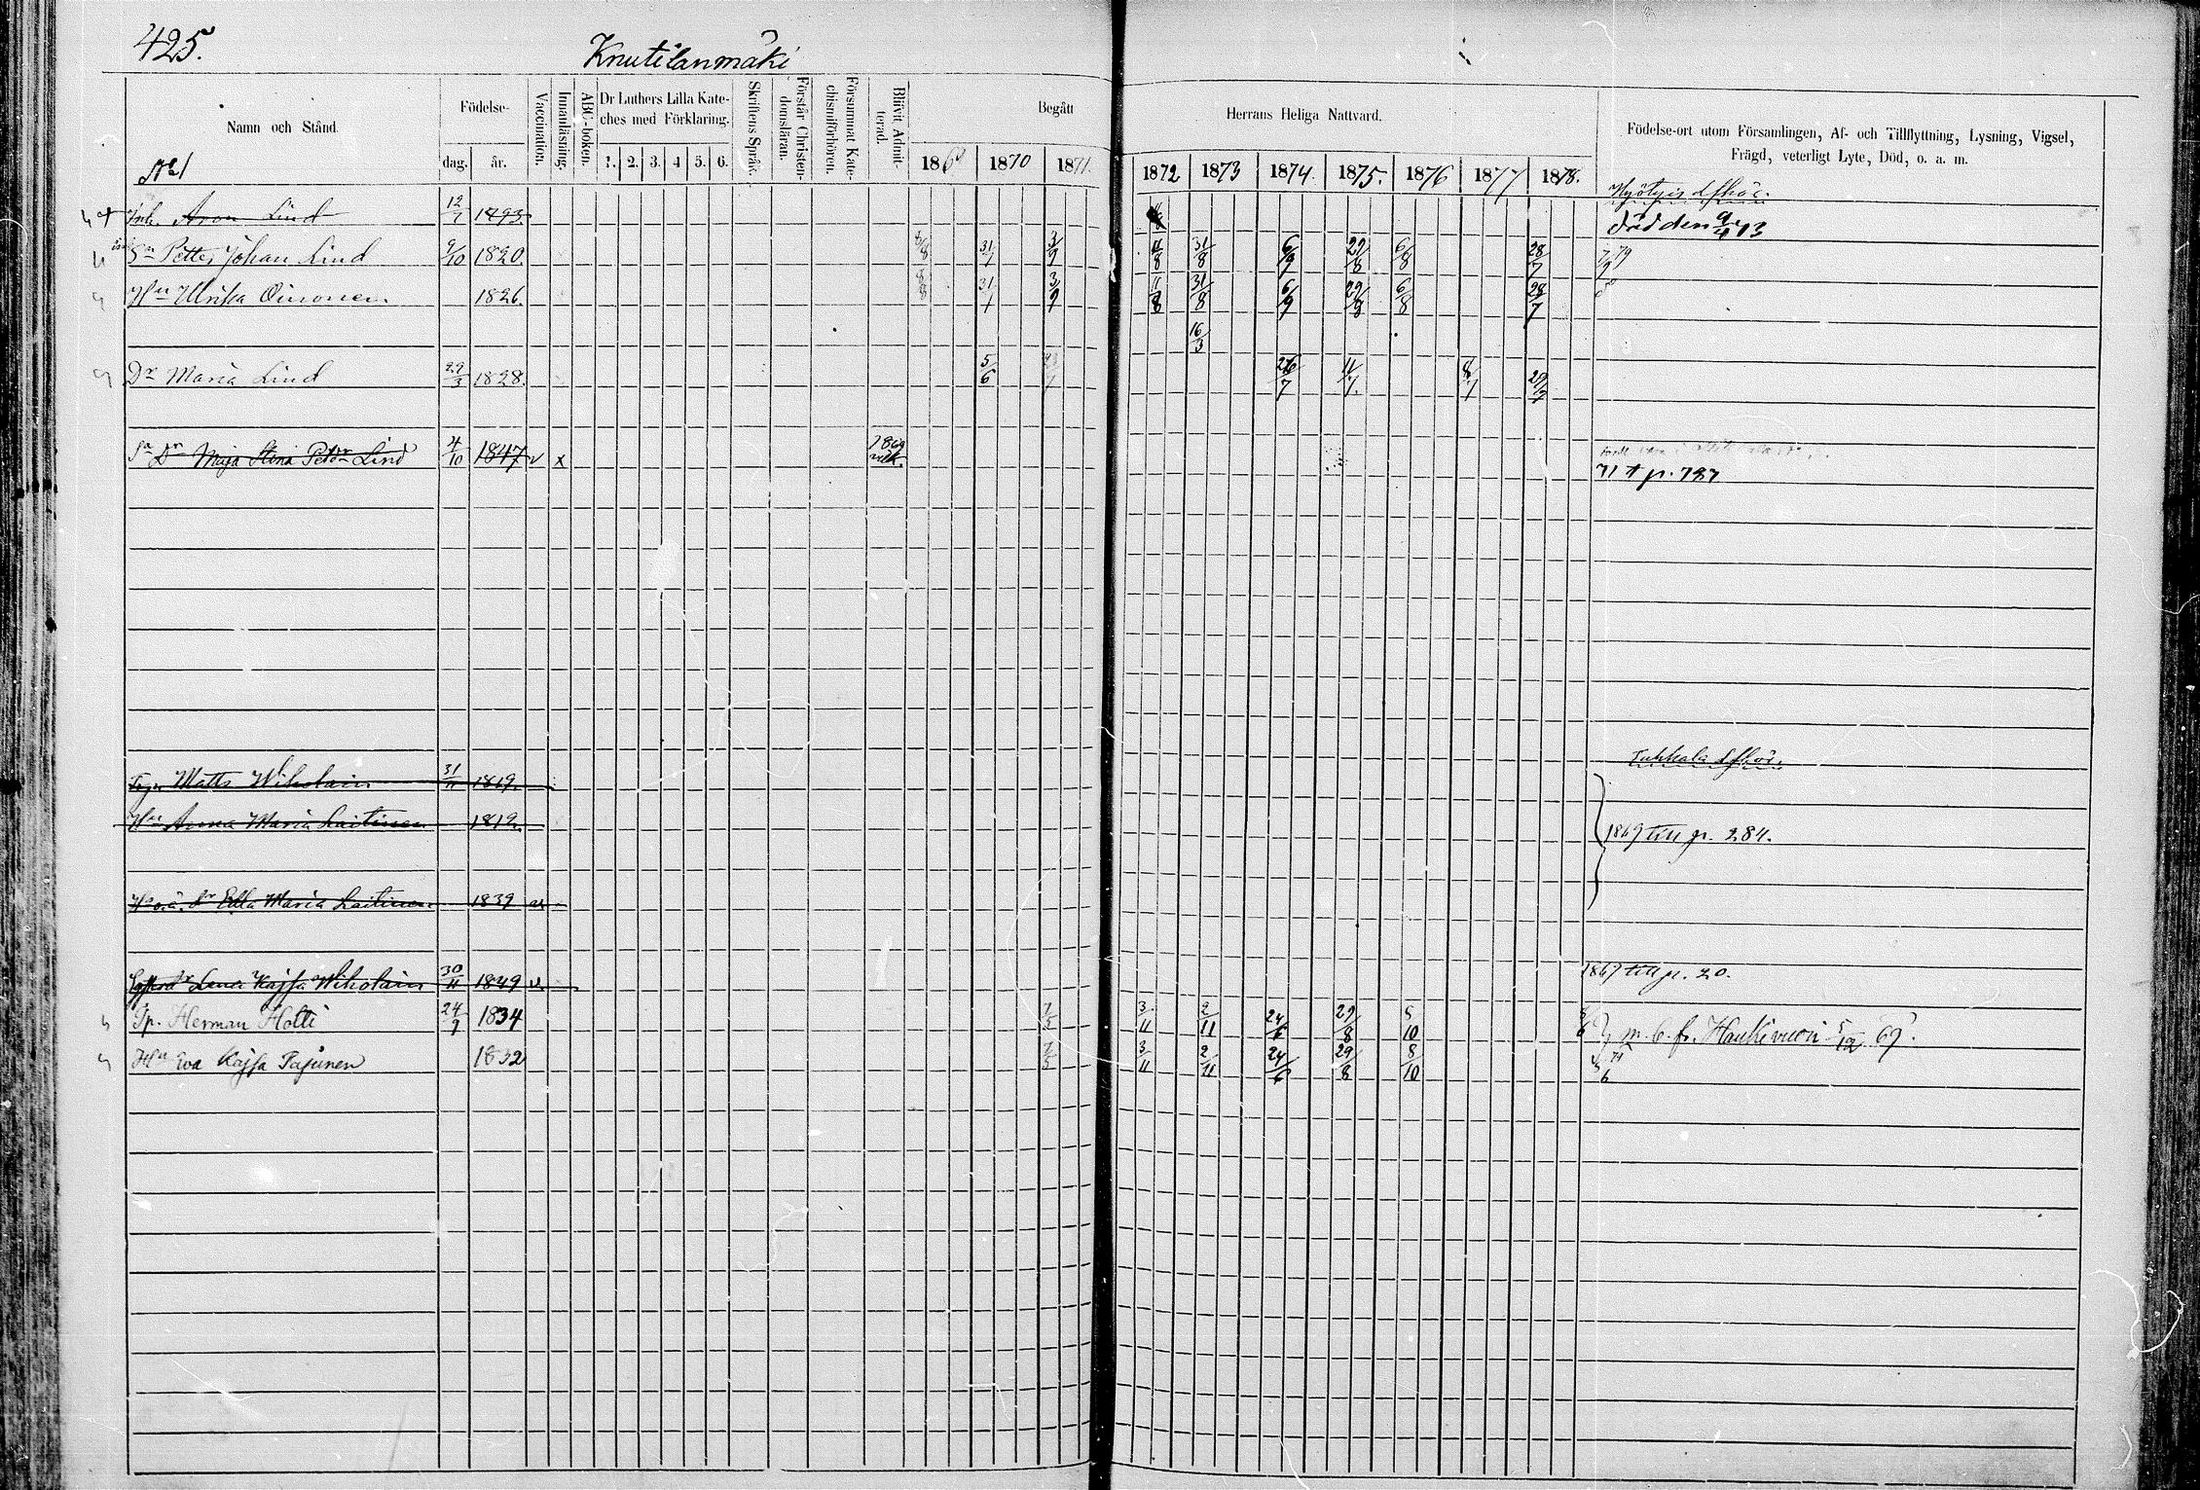 425.
Knutilanmäki
Namn och Stånd.
Födelse-
dag. år.
Vaccination.
Innanläsning.
ABC-boken.
Dr Luthers Lilla Kate-
ches med Förklaring.
1. 2. 3. 4 5. 6.
Skriftens Språk.
Förstår Christen-
domsläran.
Försummat Kate-
chismiförhören.
Blifvit Admit-
terad.
Begått
Herrans Heliga Nattvard.
1869 1870 1871.
1872 1873 1874. 1875. 1876 1877 1878.
Födelse-ort utom Församlingen, Af- och Tillflyttning, Lysning, Vigsel,
Frägd, veterligt Lyte, Död, o. a. m.
No 1
Aron Lind 12/7 1793 död den 9/4 73
Sn Petter Johan Lind 9/10 1820. 31/7 3/9 11/8 31/8 6/9 29/8 6/8 28/7
Hu Ulrika Oinonen 1826. 8/8 31/7 3/9 11/8 31/8 6/9 29/8 6/8 28/7
16/3
Dr Maria Lind 29/3 1828. 5/6 26/7 11/7. 8/7 29/7
Dr Maja Stina Petdr Lind 4/10 1847 v x 1869
71 t p. 797
Matts Wiholain 31/11 1819.
Hu Anna Maria Laitinen 1819. 1869 till p. 284.
Ella Maria Laitinen 1839
Lena Kajsa Wiholain 30/11 1849 v. 1869 till p. 20.
Tp. Herman Holti 24/9 1834 7/5 3/11 2/11 24/6 29/8 8/10 m. b. fr. Haukivuori 5/12 69.
Hu Eva Kajsa Pajunen 1832 7/5 3/11 2/11 24/6 29/8 8/10